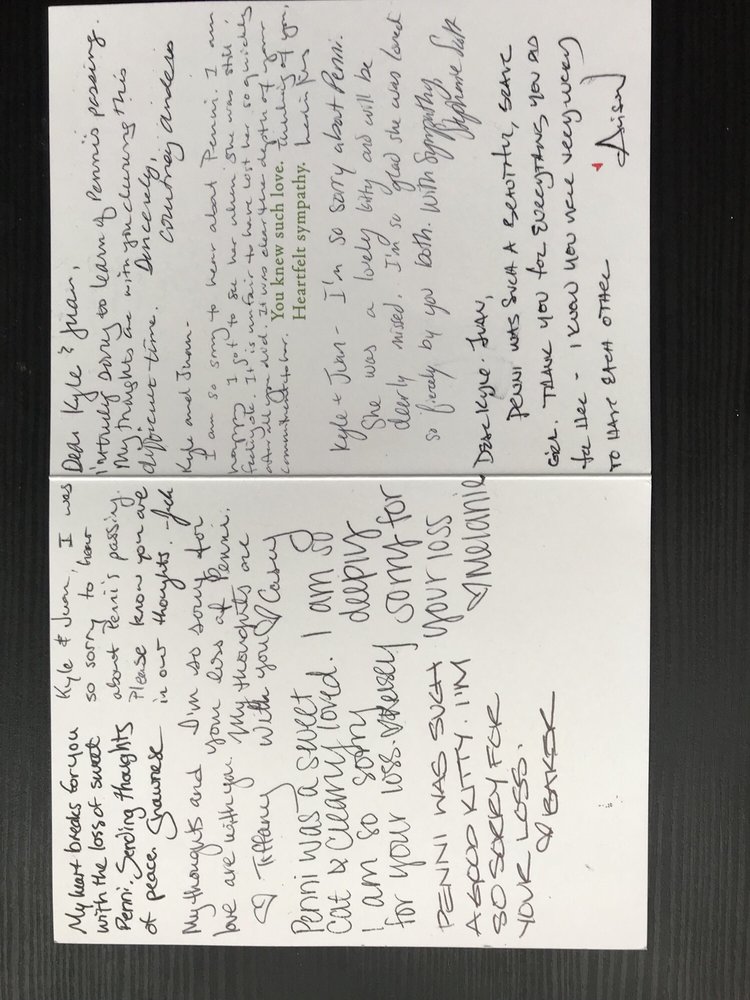 My heart breaks for you
with the loss of sweet
Penni. Sending thoughts
of peace. Shawnese
Kyle & Juan, I was
so sorry to hear
about Penni's passing.
Please know you are
in our thoughts.
My thoughts and
love are with you
♡ Tiffany
I'm so sorry for
your loss of Penni.
My thoughts are
with you ♡ Casey
Penni was a sweet
cat & clearly loved.
I am so sorry
for your loss. ♡Kelsey
I am so
deeply
sorry for
your loss
♡Melanie
PENNI WAS SUCH
A GOOD KITTY. I'M
SO SORRY FOR
YOUR LOSS.
♡ BAKER
Dear Kyle & Juan,
I'm truly sorry to learn of Penni's passing.
My thoughts are with you during this
difficult time. Sincerely,
Courtney
Kyle and Juan-
I am so sorry to hear about Penni. I am
happy I got to see her when she was still
feeling ok. It is unfair to have lost her so quickly
after all you did. It was clear the depth of your
commitment to her. Thinking of you,
You knew such love.
Heartfelt sympathy.
Kyle + Juan - I'm so sorry about Penni.
She was a lovely kitty and will be
dearly missed. I'm so glad she was loved
so fiercely by you both. With Sympathy,
Stephanie
DEAR KYLE & JUAN,
PENNI WAS SUCH A BEAUTIFUL, SWEET
GIRL. THANK YOU FOR EVERYTHING YOU DID
FOR HER - I KNOW YOU WERE VERY LUCKY
TO HAVE EACH OTHER